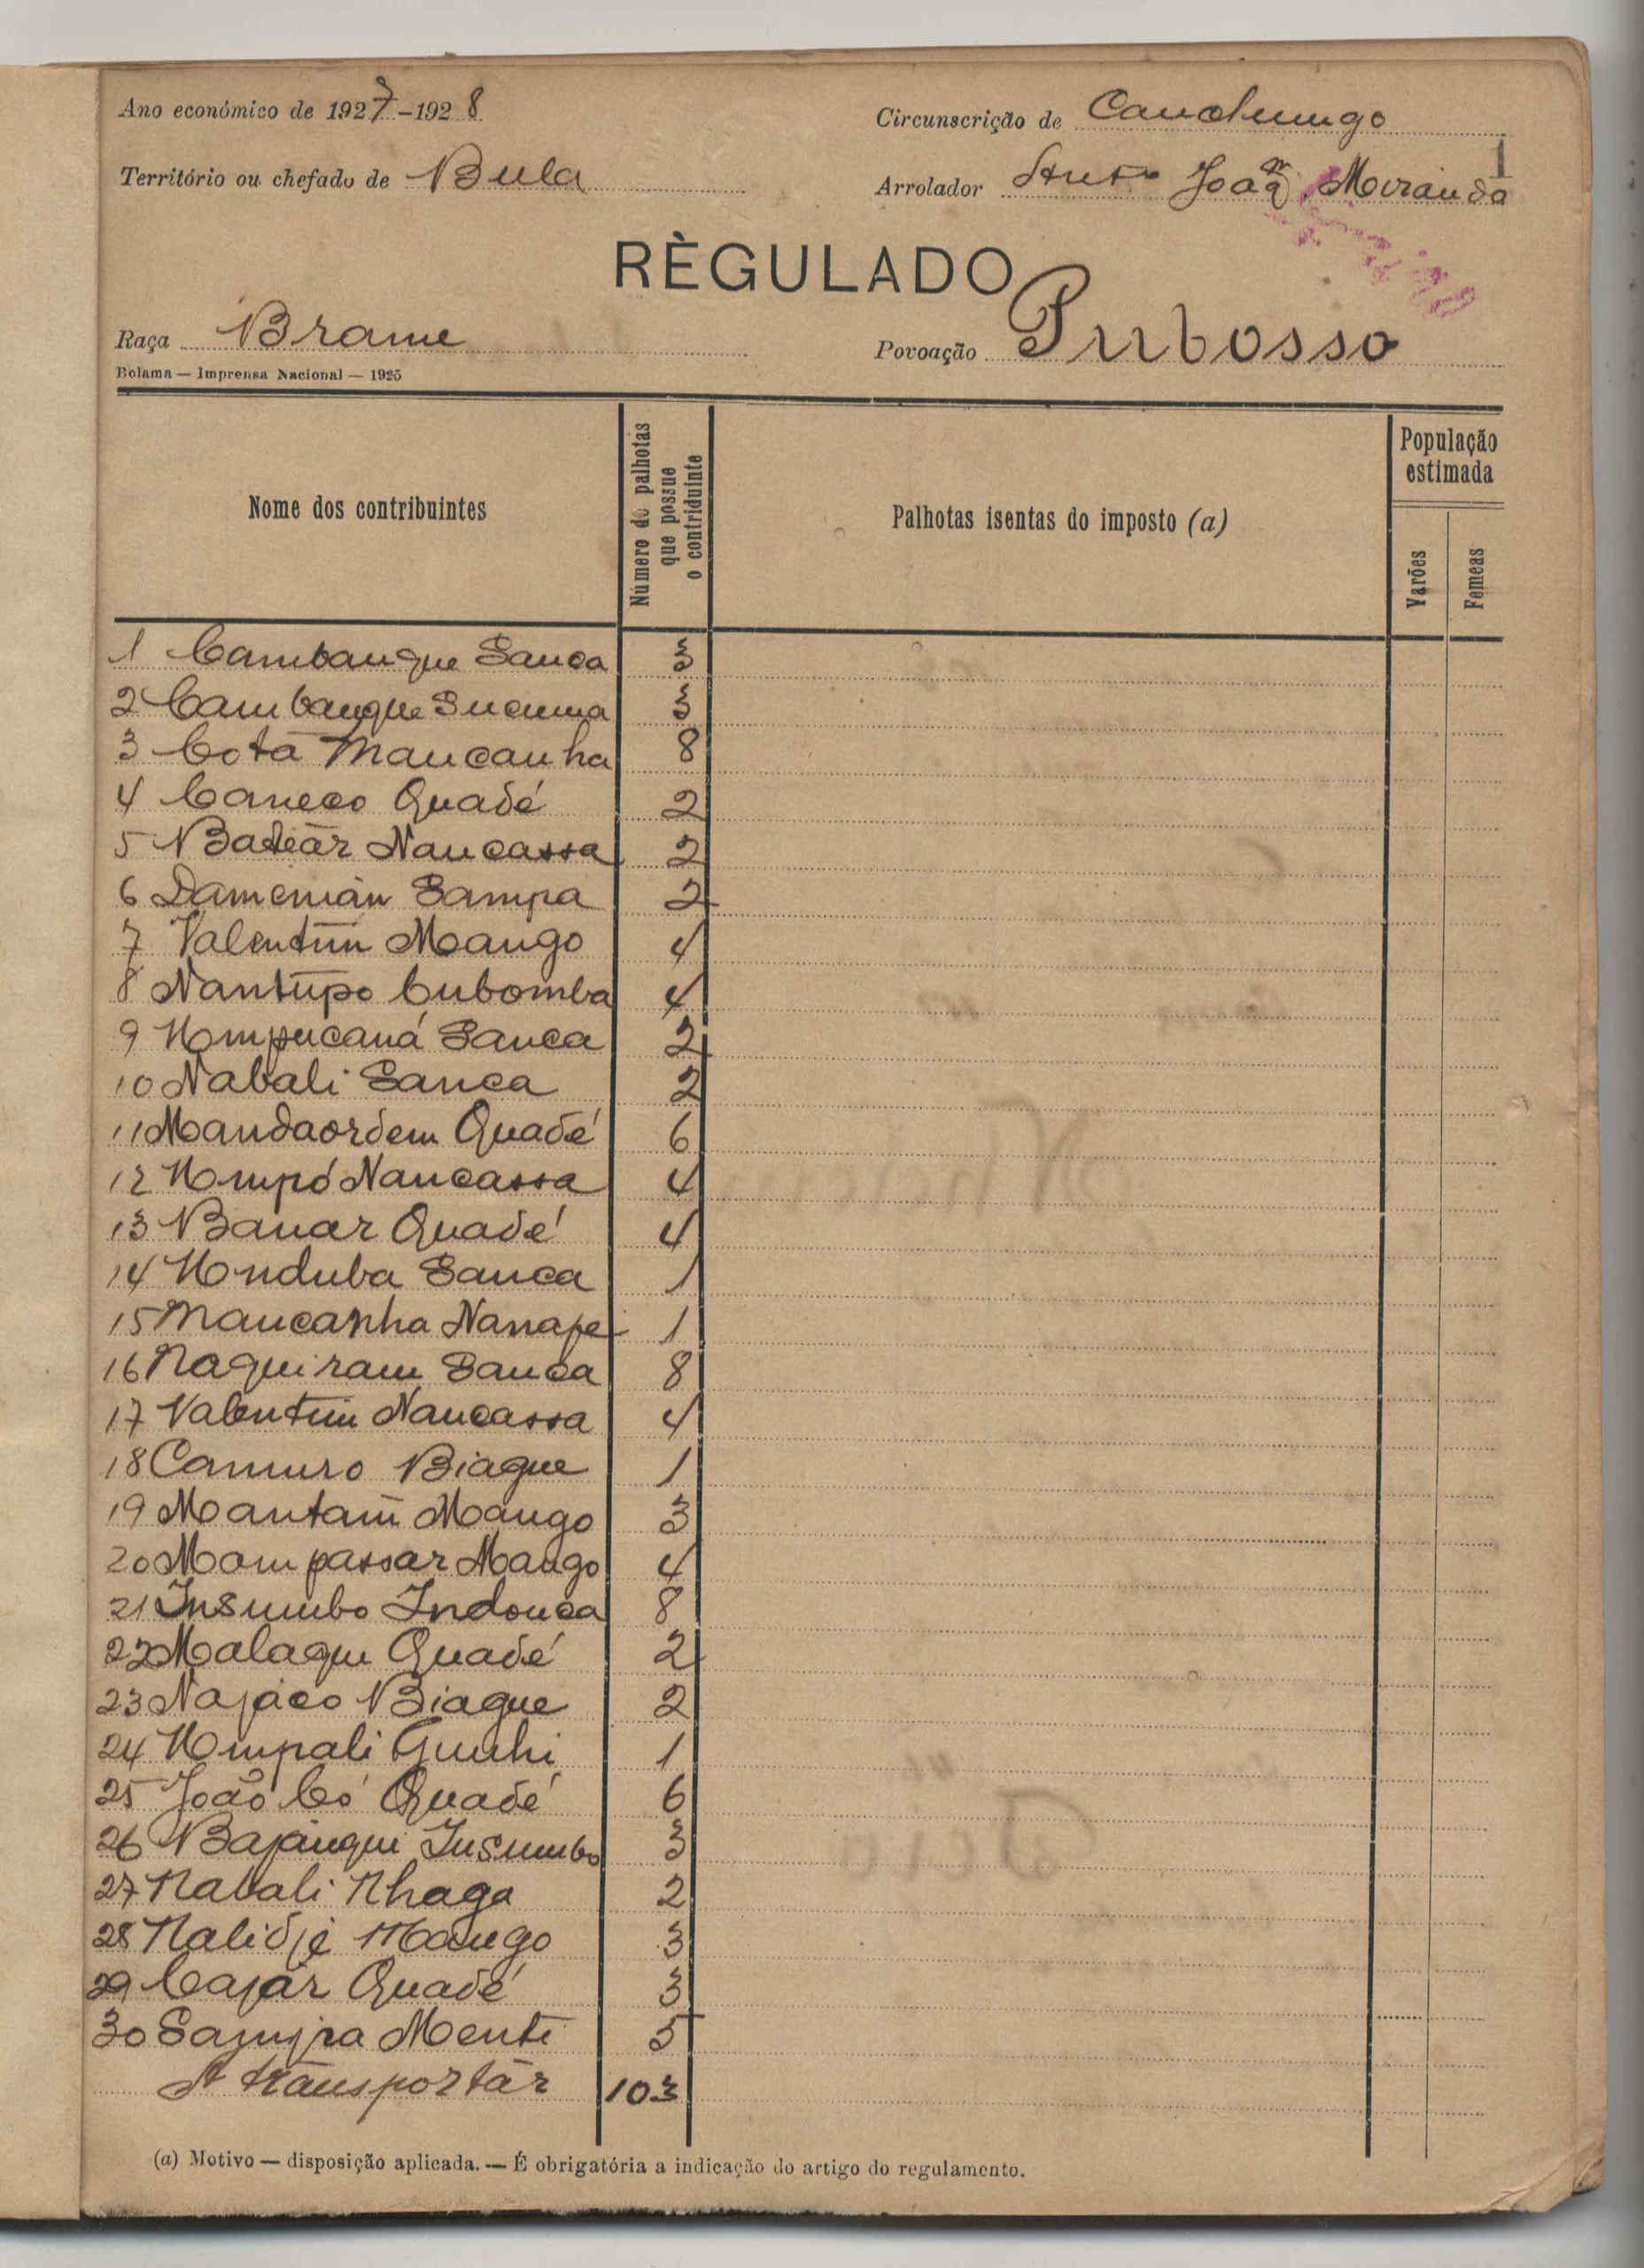 Ano económico de 1927-1928
Circunscrição de Canchungo
1
Território ou chefado de Bula
Arrolador João Miranda
RÈGULADO
Raça Brame
Povoação Pubosso
Bolama — Imprensa Nacional — 1925
Nome dos contribuintes
Número de palhotas que possue o contriduinte
Palhotas isentas do imposto (a)
População estimada
Varões
Femeas
1 Cambanque Sanca 3
2 Cambanque Sucuma 3
3 Cotá Mancanha 8
4 Caneco Quadé 2
5 Batear Nancassa 2
6 Damenián Sampa 2
7 Valentim Mango 4
8 Nantupo Cubomba 4
9 Hompucaná Sanca 2
10 Nabali Sanca 2
11 Mandaordem Quadé 6
12 Hompó Nancassa 4
13 Banar Quadé 4
14 Honduba Sanca 1
15 Mancanha Nanafe 1
16 Naquiram Sanca 8
17 Valentim Nancassa 4
18 Camuro Biague 1
19 Mantam Mango 3
20 Mompassar Mango 4
21 Insumbo Indonca 8
22 Malaqui Quadé 2
23 Najaco Biague 2
24 Hompali 1
25 João Có Quadé 6
26 Bajanqui Insumbo 3
27 Nabali Nhaga 2
28 Nalidje Mango 3
29 Cajár Quadé 3
30 Sampra Menti 5
A transportár 103
(a) Motivo — disposição aplicada. — É obrigatória a indicação do artigo do regulamento.